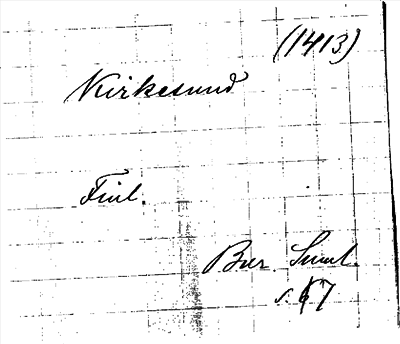 (1413)
Kirkesund
Finl.
Bur. Suml.
s. 67